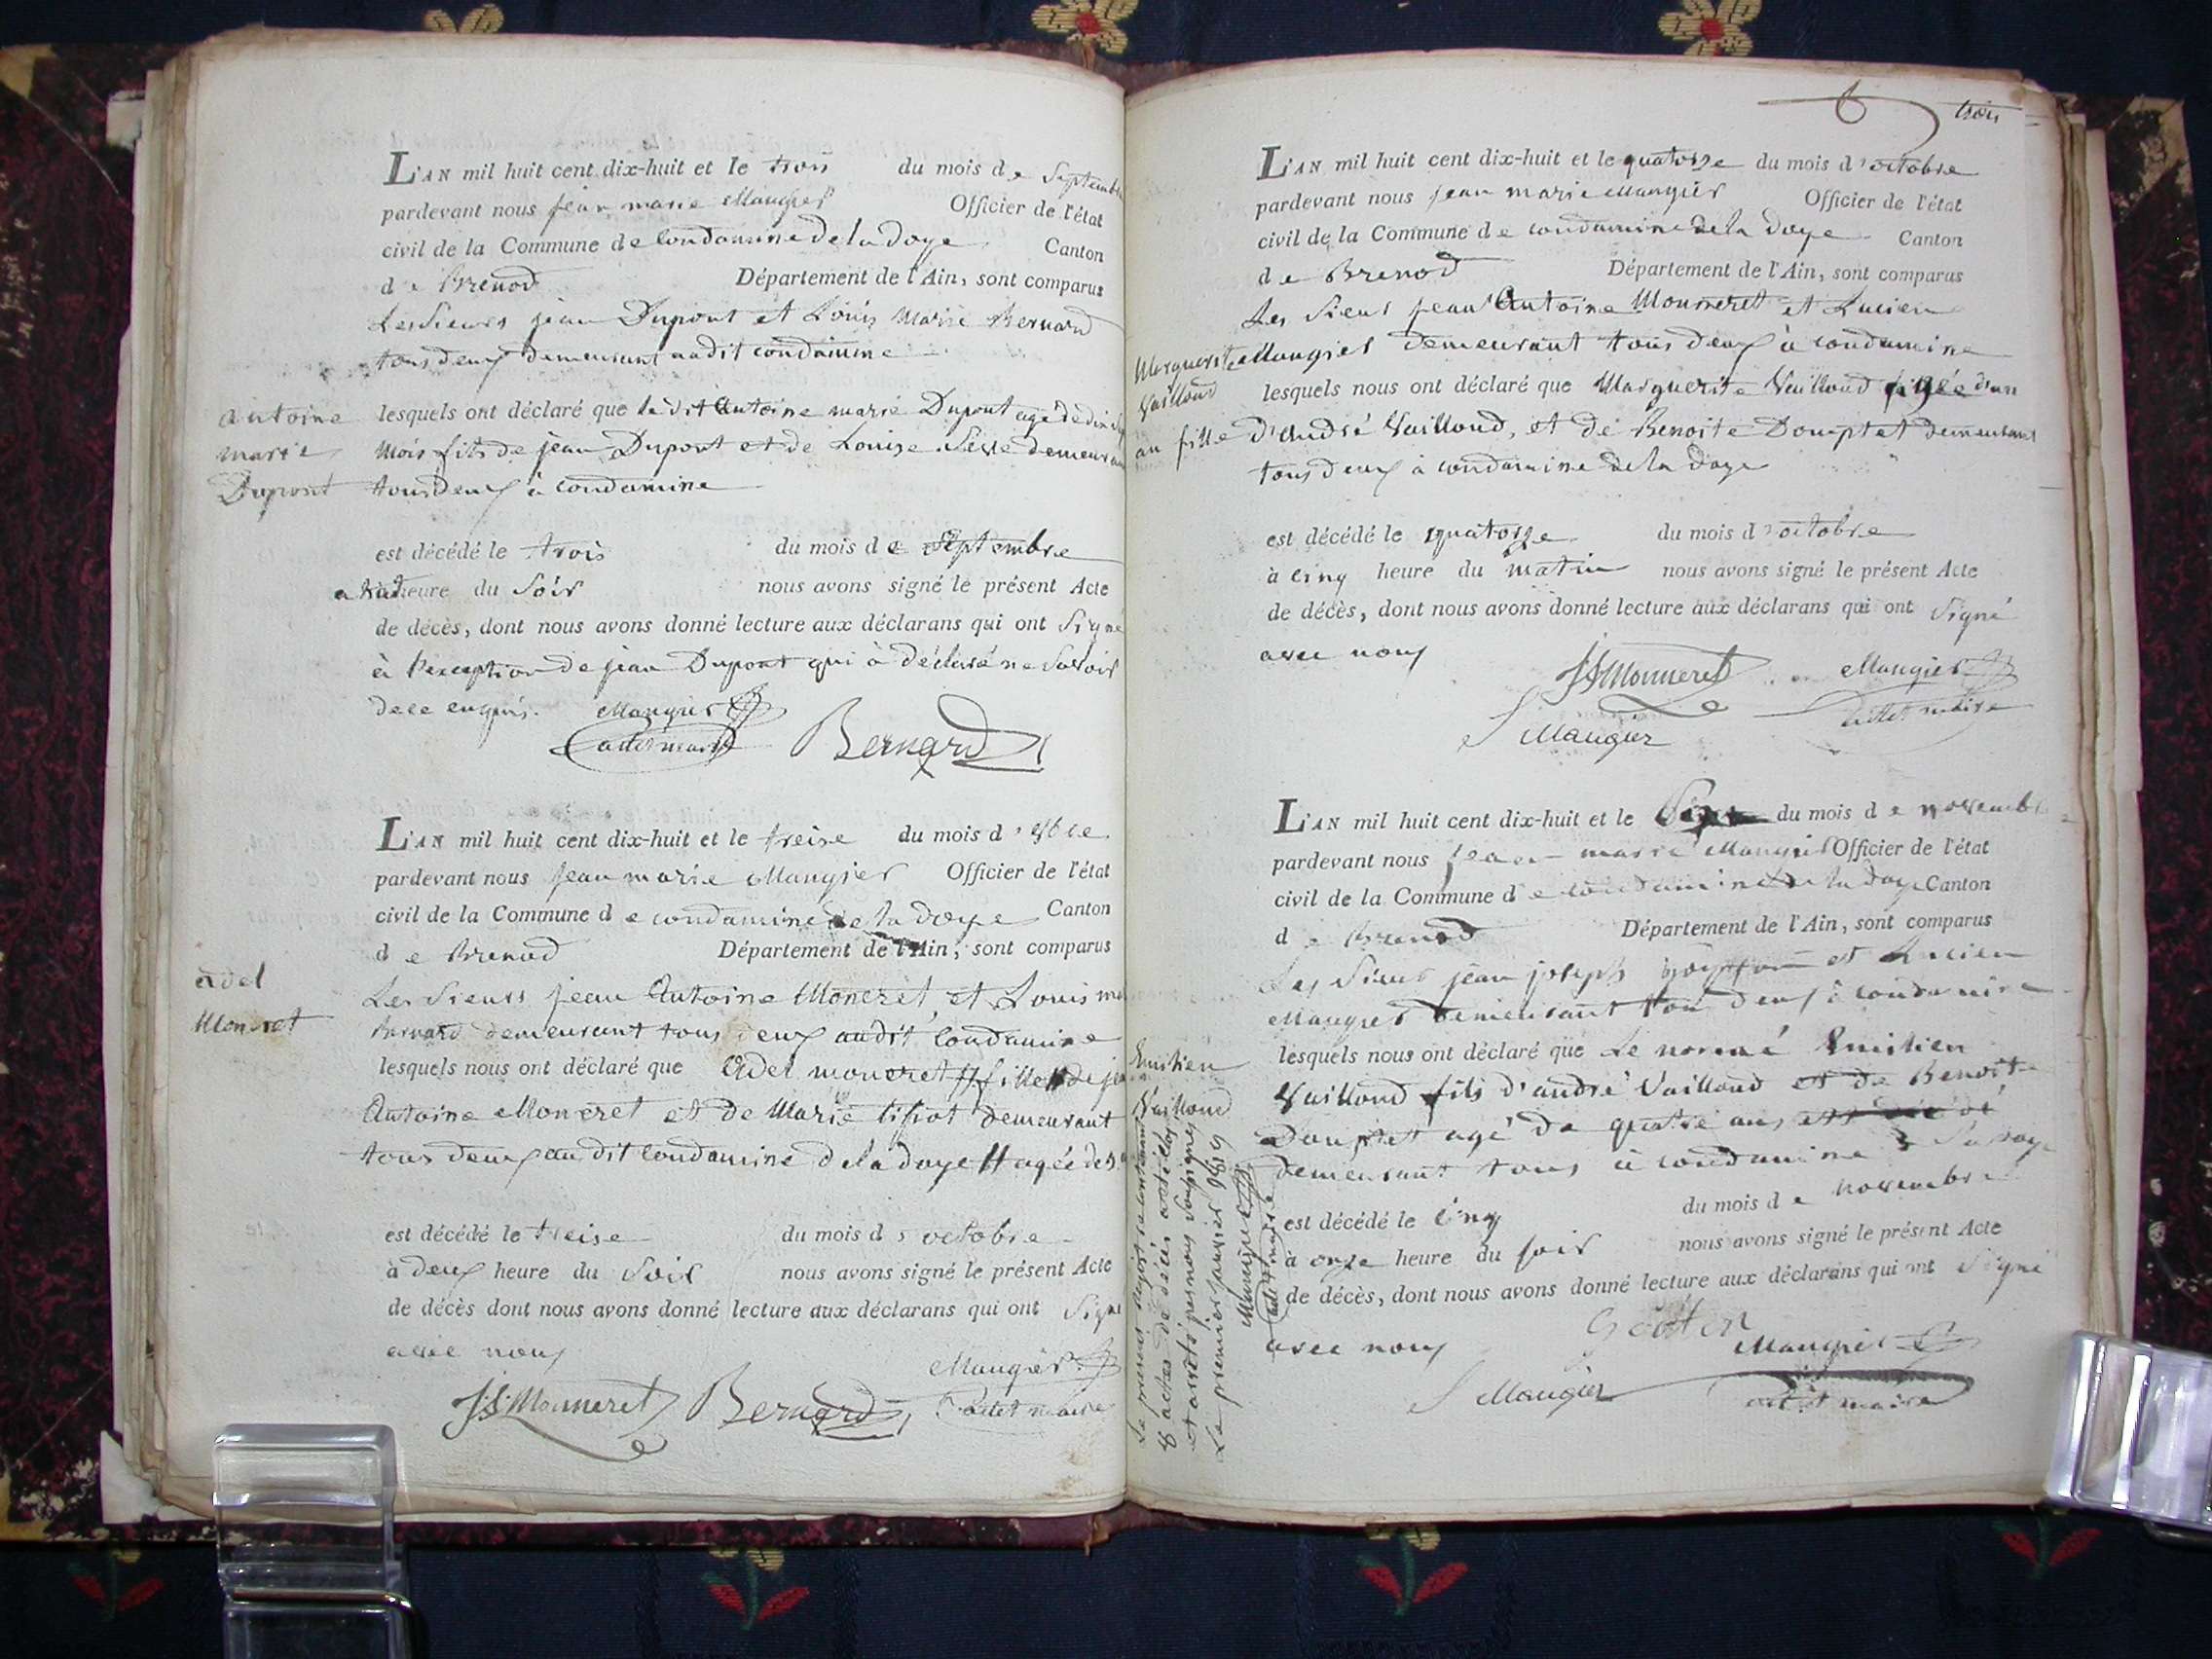 L'AN mil huit cent dix-huit et le trois du mois de Septembre
pardevant nous jean marie Maugier Officier de l'état
civil de la Commune de Condamine de la doye Canton
de Brenod Département de l'Ain, sont comparus
Les Sieurs jean Dupont et Louis Marie Bernard
tous deux demeurant audit condamine
antoine
marie
Dupont
lesquels ont déclaré que le dit Antoine marie Dupont agé de
Mois fils de jean Dupont et de Louise demeurant
tous deux à condamine
est décédé le trois du mois de Septembre
a huit heure du Soir nous avons signé le présent Acte
de décès, dont nous avons donné lecture aux déclarans qui ont Signé
à l'exception de jean Dupont qui à déclaré ne Savoir
de ce enquis. Maugier
adet maire Bernard
L'AN mil huit cent dix-huit et le treise du mois d' 8bre
pardevant nous jean marie Maugier Officier de l'état
civil de la Commune de condamine de la doye Canton
de Brenod Département de l'Ain, sont comparus
adel
Moneret
Les Sieurs jean Antoine Moneret et Louis
Bernard demeurant tous deux audit Condamine
lesquels nous ont déclaré que Adel moneret fille de
Antoine Moneret et de Marie demeurant
tous deux audit Condamine de la doye agée de
est décédé le treise du mois d'octobre
à deux heure du Soir nous avons signé le présent Acte
de décès dont nous avons donné lecture aux déclarans qui ont Signé
avec nous
Maugier
Monneret Bernard adet maire
trois
L'AN mil huit cent dix-huit et le quatorze du mois d'octobre
pardevant nous jean marie Maugier Officier de l'état
civil de la Commune de condamine de la doye Canton
de Brenod Département de l'Ain, sont comparus
Les Sieurs jean Antoine Monneret et Lucien
Maugier demeurant tous deux à condamine
Marguerite
Vailloud
lesquels nous ont déclaré que Marguerite Vailloud agée d'un
an fille d'André Vailloud, et de Benoite Douptet demeurant
tous deux à condamine de la doye
est décédé le quatorze du mois d'octobre
à cinq heure du matin nous avons signé le présent Acte
de décès, dont nous avons donné lecture aux déclarans qui ont Signé
avec nous
Monneret Maugier
adet maire
Maugier
L'AN mil huit cent dix-huit et le du mois de novembre
pardevant nous jean marie Maugier Officier de l'état
civil de la Commune de condamine de la doye Canton
de Brenod Département de l'Ain, sont comparus
Les Sieurs jean joseph et Lucien
Maugier demeurant tous deux à condamine
Emilien
Vailloud
lesquels nous ont déclaré que Le nommé Emilien
Vailloud fils d'andré Vailloud et de Benoite
Douptet agé de quatre ans est décédé
demeurant tous à condamine
est décédé le cinq du mois de novembre
à onze heure du soir nous avons signé le présent Acte
de décès, dont nous avons donné lecture aux déclarans qui ont Signé
avec nous
Maugier
Maugier adet maire
Le présent contenant
8 actes de décès a été clos
et arrêté par nous Soussignés
Le premier janvier 1819
Maugier
adet maire